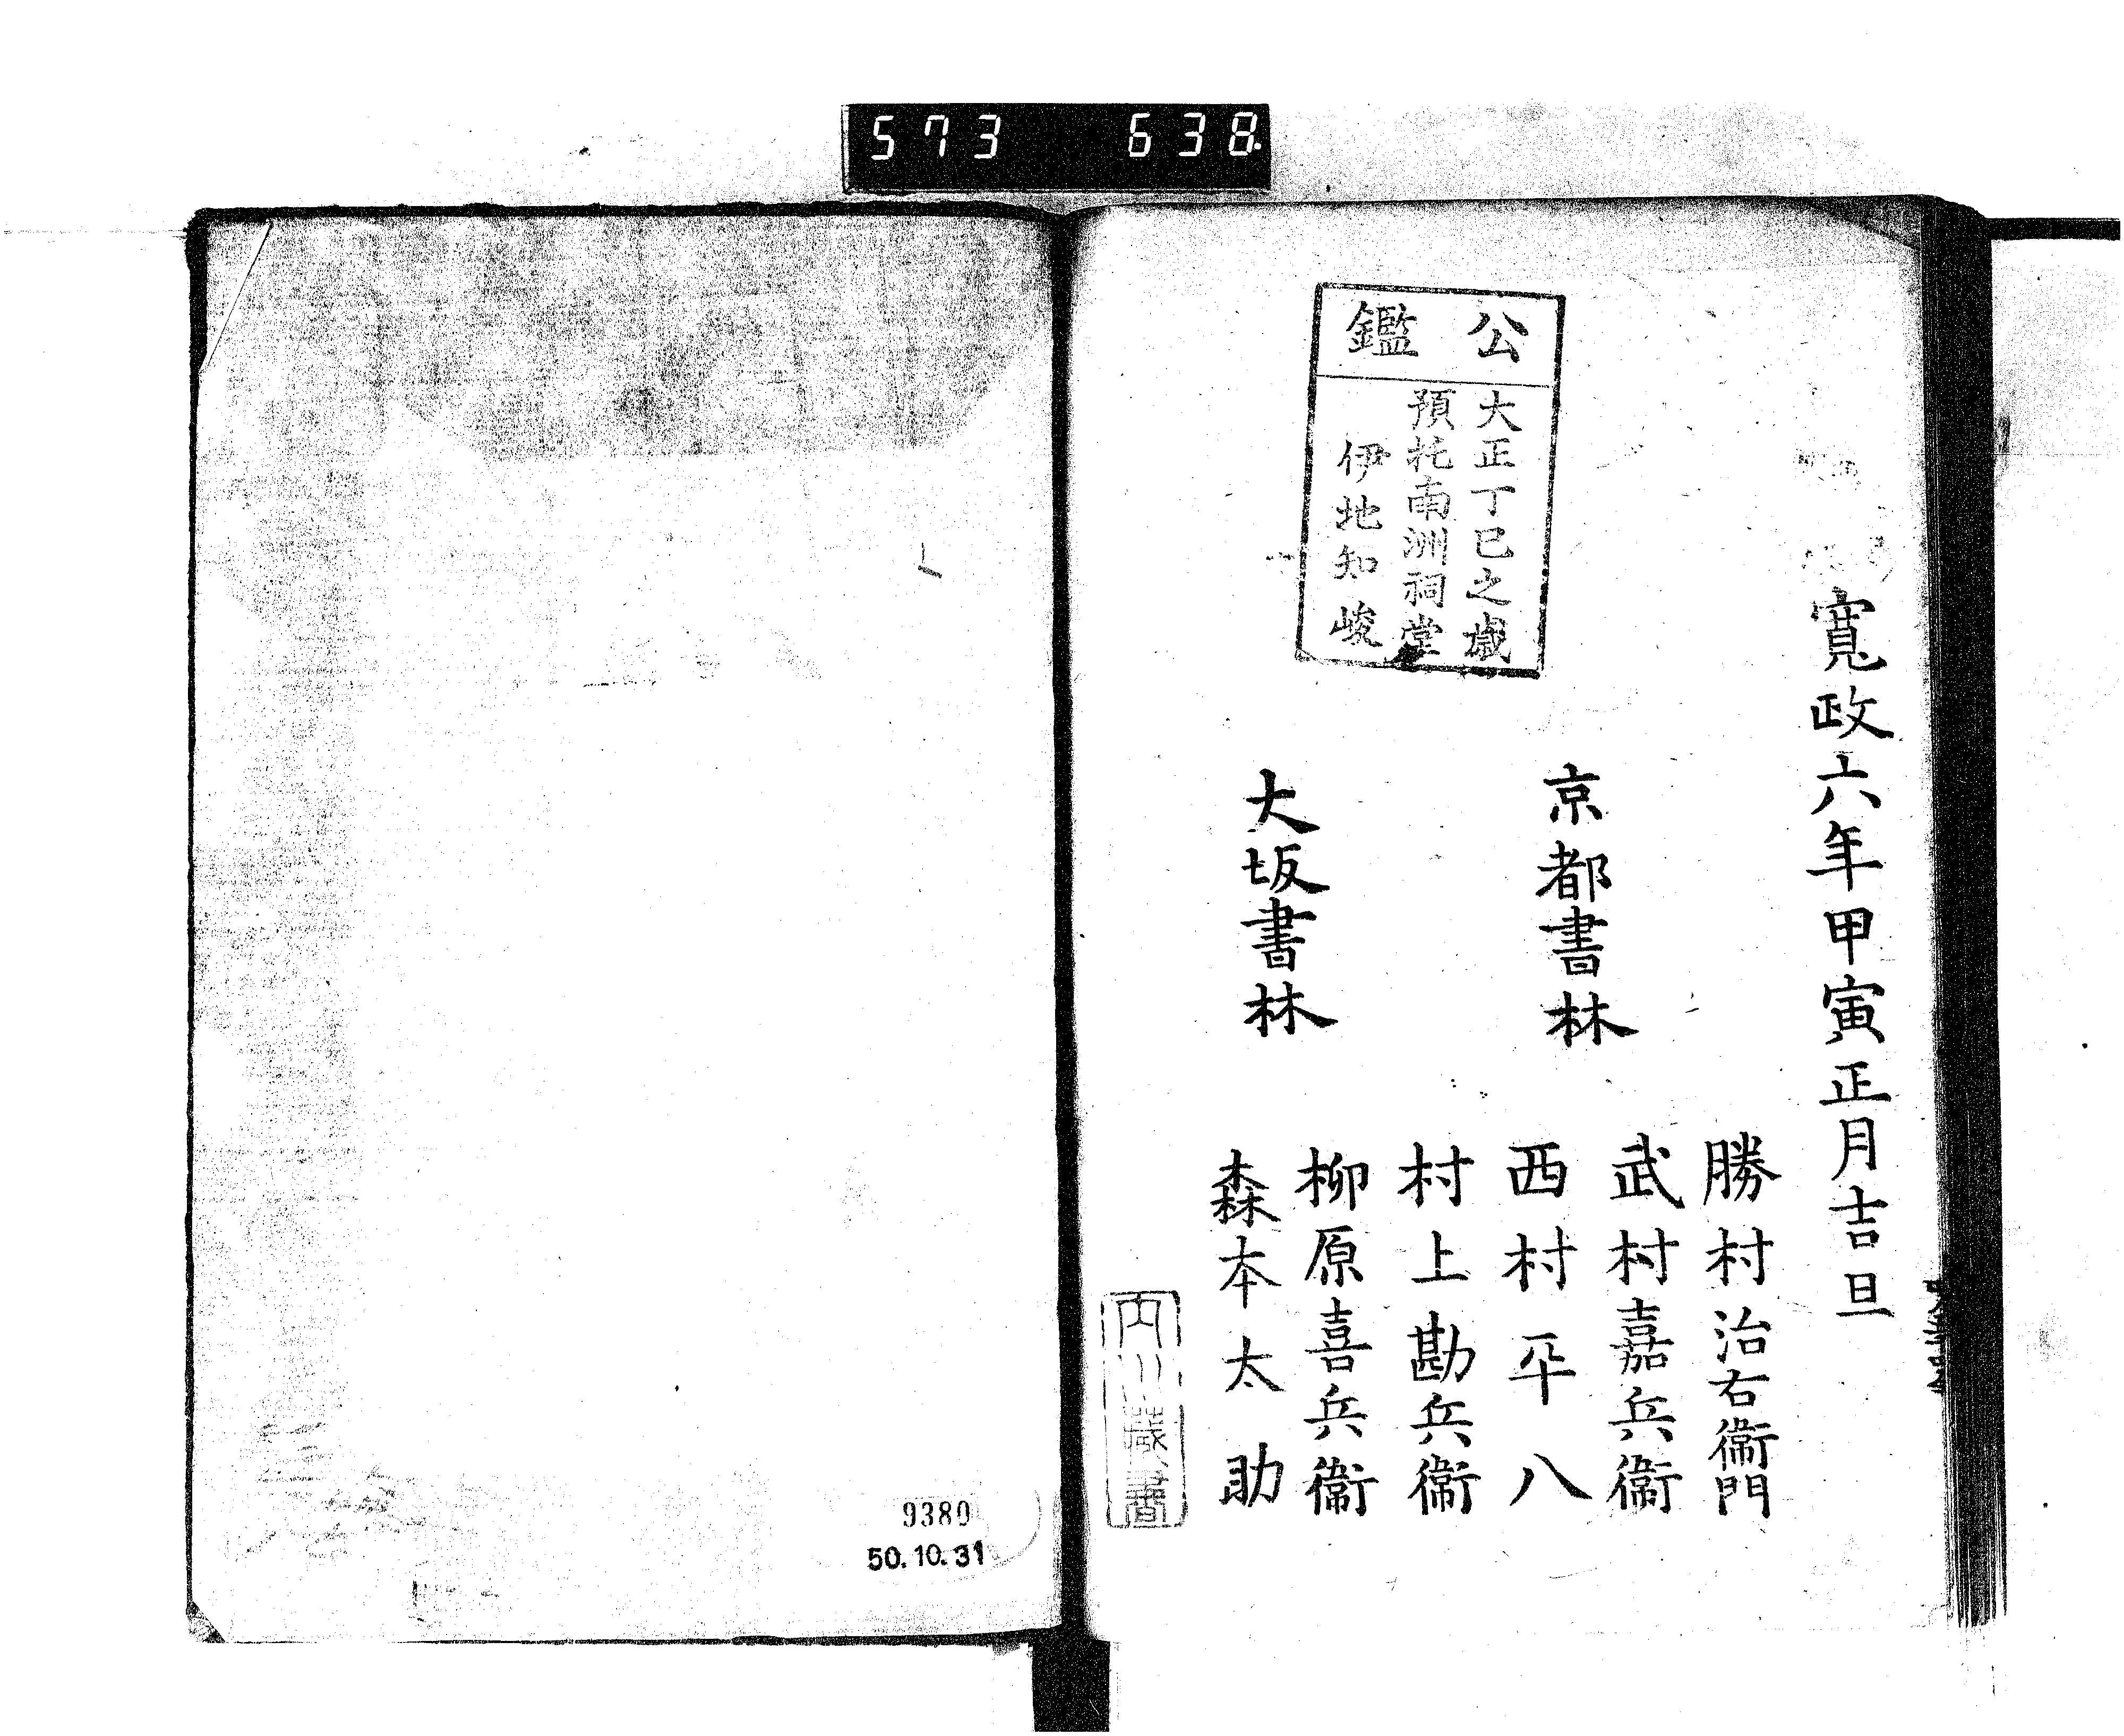 573 638.
寛政六年甲寅正月吉旦
京都書林
勝村治右衞門
武村嘉兵衞
西村平八
村上勘兵衞
大坂書林
柳原喜兵衞
森本太助
公鑑
大正丁巳之歳
預托南洲祠堂
伊地知峻
川藏書
9380
50.10.31